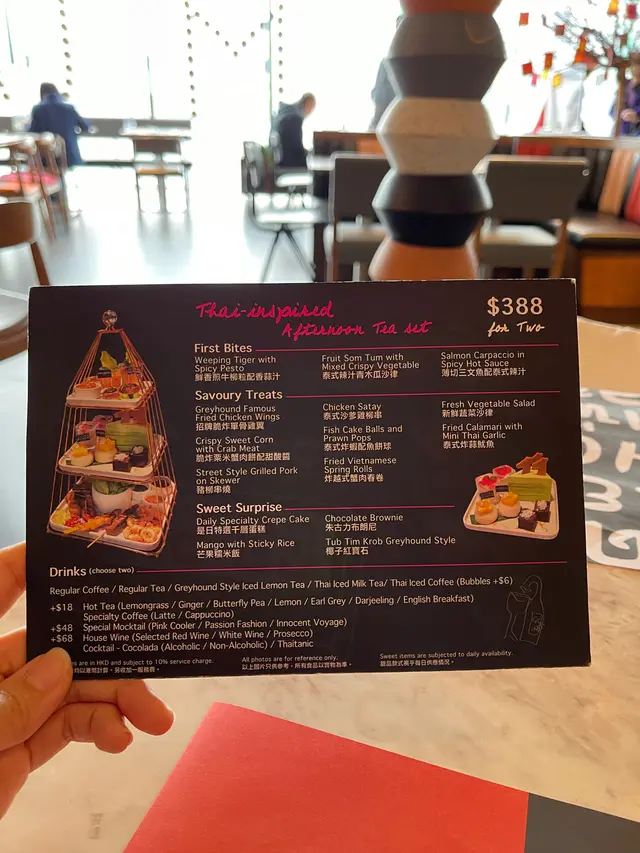 Thai-inspired
Afternoon Tea set
$388
for Two
First Bites
Weeping Tiger with
Spicy Pesto
鮮香煎牛柳粒配香蒜汁
Fruit Som Tum with
Mixed Crispy Vegetable
泰式辣汁青木瓜沙律
Salmon Carpaccio in
Spicy Hot Sauce
薄切三文魚配泰式辣汁
Savoury Treats
Greyhound Famous
Fried Chicken Wings
招牌脆炸單骨雞翼
Crispy Sweet Corn
with Crab Meat
脆炸粟米蟹肉餅配甜酸醬
Street Style Grilled Pork
on Skewer
豬柳串燒
Chicken Satay
泰式沙爹雞柳串
Fish Cake Balls and
Prawn Pops
泰式炸蝦配魚餅球
Fried Vietnamese
Spring Rolls
炸越式蟹肉春卷
Fresh Vegetable Salad
新鮮蔬菜沙律
Fried Calamari with
Mini Thai Garlic
泰式炸蒜魷魚
Sweet Surprise
Daily Specialty Crepe Cake
是日特選千層蛋糕
Mango with Sticky Rice
芒果糯米飯
Chocolate Brownie
朱古力布朗尼
Tub Tim Krob Greyhound Style
椰子紅寶石
Drinks (choose two)
Regular Coffee / Regular Tea / Greyhound Style Iced Lemon Tea / Thai Iced Milk Tea/ Thai Iced Coffee (Bubbles +$6)
+$18 Hot Tea (Lemongrass / Ginger / Butterfly Pea / Lemon / Earl Grey / Darjeeling / English Breakfast)
Specialty Coffee (Latte / Cappuccino)
+$48 Special Mocktail (Pink Cooler / Passion Fashion / Innocent Voyage)
+$68 House Wine (Selected Red Wine / White Wine / Prosecco)
Cocktail - Cocolada (Alcoholic / Non-Alcoholic) / Thaitanic
are in HKD and subject to 10% service charge.
All photos are for reference only.
以上圖片只供參考，所有食品以實物為準。
Sweet items are subjected to daily availability.
甜品款式視乎每日供應情況。